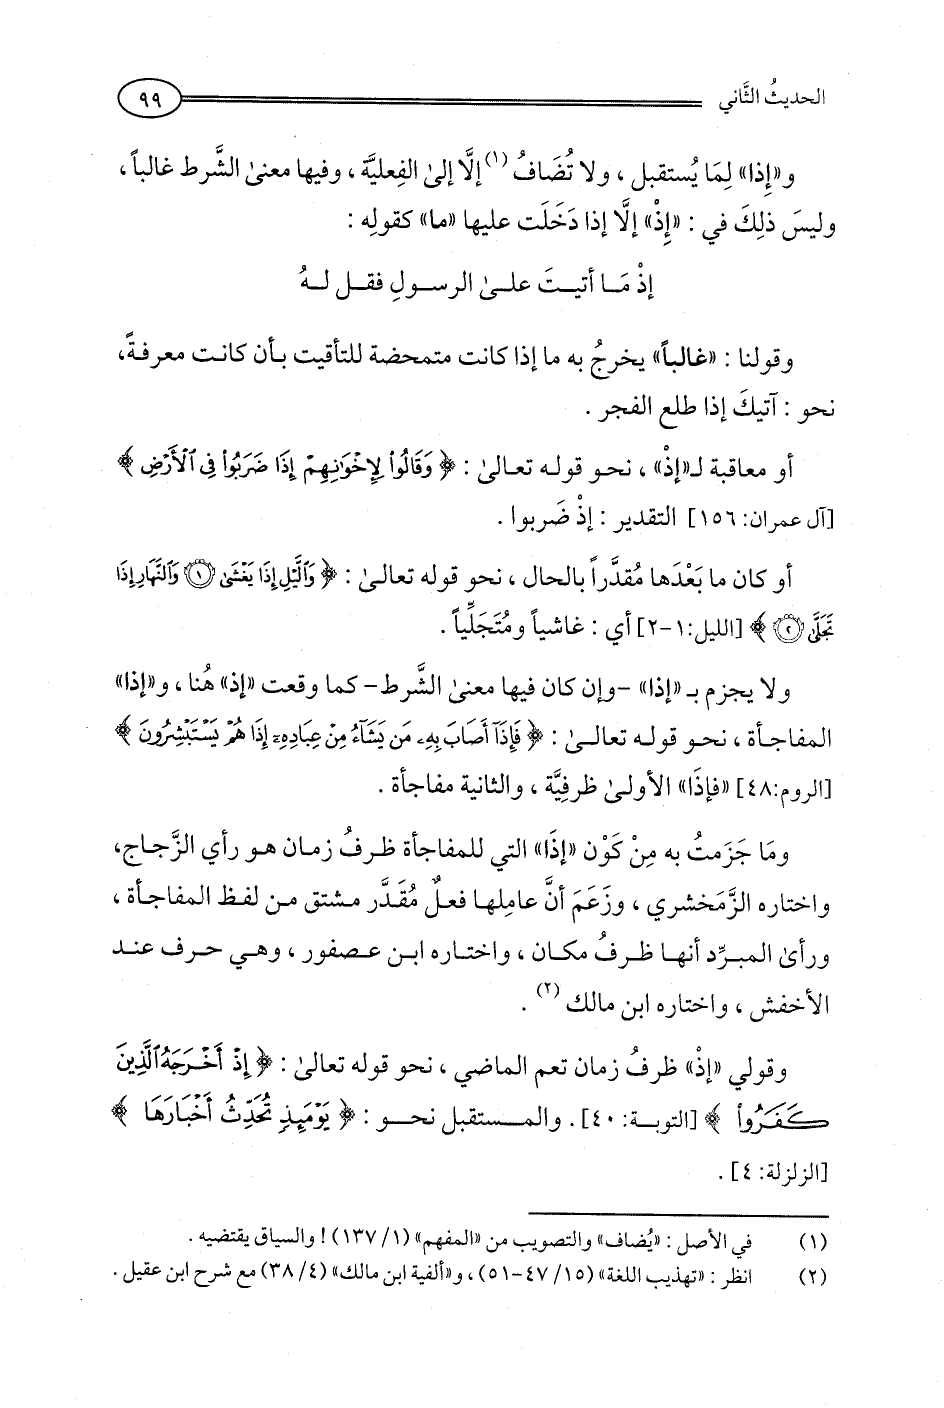 الحديثُ الثَّاني
٩٩
و«إِذا» لِمَا يُستقبل ، ولا تُضَافُ (١) إلَّا إلىٰ الفِعليَّة ، وفيها معنىٰ الشَّرط غالباً ،
وليسَ ذلِكَ في : «إِذْ» إلَّا إذا دَخَلَت عليها «ما» كقولِه :
إذْ مَـا أتيـتَ علـىٰ الرسـولِ فقـل لـهُ
وقولنا : «غالباً» يخرجُ به ما إذا كانت متمحضة للتأقيت بـأن كانـت معرفـةً،
نحو : آتيكَ إذا طلع الفجر .
أو معاقبة لـ«إذْ» ، نحـو قولـه تعـالىٰ : ﴿ وَقَالُوا۟ لِإِخْوَٰنِهِمْ إِذَا ضَرَبُوا۟ فِى ٱلْأَرْضِ ﴾
[آل عمران: ١٥٦] التقدير : إذْ ضَربوا .
أو كان ما بَعْدَها مُقدَّراً بالحال ، نحو قوله تعالىٰ : ﴿ وَٱلَّيْلِ إِذَا يَغْشَىٰ ١ وَٱلنَّهَارِ إِذَا
تَجَلَّىٰ ٢ ﴾ [الليل:١-٢] أي : غاشياً ومُتَجَلِّياً .
ولا يجزم بـ «إذا» -وإن كان فيها معنىٰ الشَّرط- كما وقعت «إذ» هُنا ، و«إذا»
المفاجـأة ، نحـو قولـه تعـالـىٰ : ﴿ فَإِذَآ أَصَابَ بِهِۦ مَن يَشَآءُ مِنْ عِبَادِهِۦٓ إِذَا هُمْ يَسْتَبْشِرُونَ ﴾
[الروم:٤٨] «فإذَا» الأولىٰ ظرفِيَّة ، والثانية مفاجأة .
ومَا جَزَمتُ به مِنْ كَوْن «إذَا» التي للمفاجأة ظرفُ زمان هـو رأي الزَّجاج،
واختاره الزَّمَخشري ، وزَعَمَ أنَّ عامِلها فعلٌ مُقَدَّر مشتق مـن لفـظ المفاجـأة ،
ورأىٰ المبـرِّد أنهـا ظـرفُ مكـان ، واختـاره ابـن عـصفور ، وهـي حـرف عنـد
الأخفش ، واختاره ابن مالك (٢) .
وقولي «إذْ» ظرفُ زمان تعم الماضي ، نحو قوله تعالىٰ : ﴿ إِذْ أَخْرَجَهُ ٱلَّذِينَ
كَفَرُوا۟ ﴾ [التوبـة: ٤٠] . والمـستقبل نحـو : ﴿ يَوْمَئِذٍ تُحَدِّثُ أَخْبَارَهَا ﴾
[الزلزلة: ٤] .
(١) في الأصل : «يُضاف» والتصويب من «المفهم» (١/ ١٣٧) ! والسياق يقتضيه .
(٢) انظر : «تهذيب اللغة» (١٥/ ٤٧-٥١) ، و«ألفية ابن مالك» (٤/ ٣٨) مع شرح ابن عقيل .